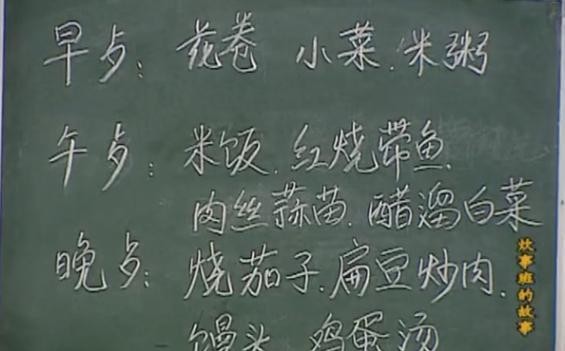 早点：花卷 小菜.米粥
午点：米饭.红烧带鱼
肉丝蒜苗.醋溜白菜
晚点：烧茄子.扁豆炒肉.
馒头.鸡蛋汤
炊事班的故事